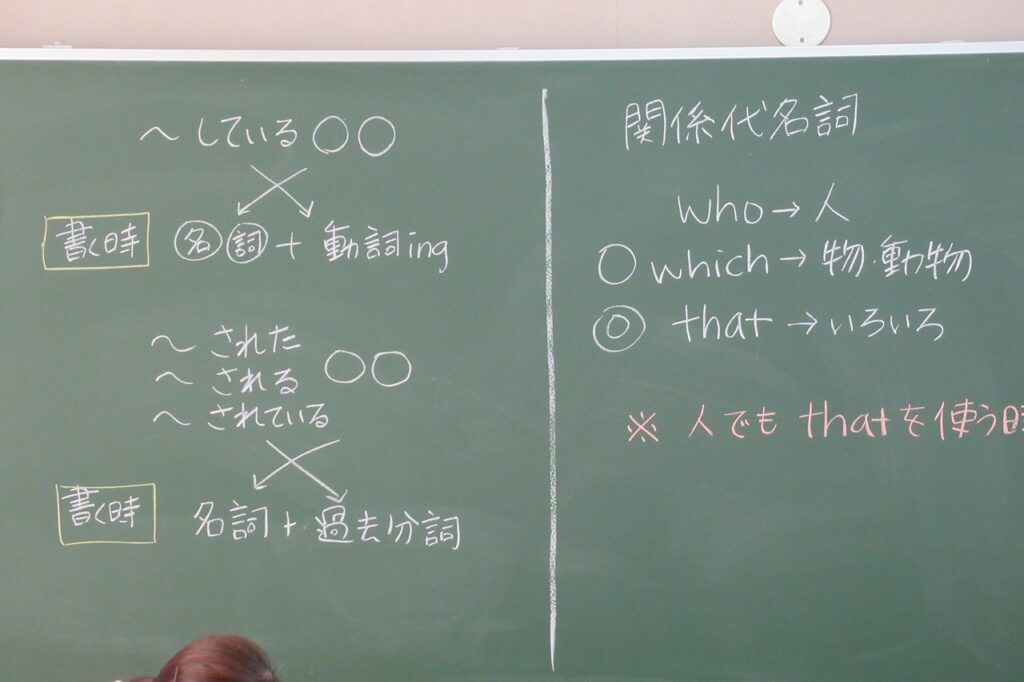 ～している○○
書く時 名詞＋動詞ing
～された
～される ○○
～されている
書く時 名詞＋過去分詞
関係代名詞
who→人
○which→物・動物
◎that→いろいろ
※人でもthatを使う時